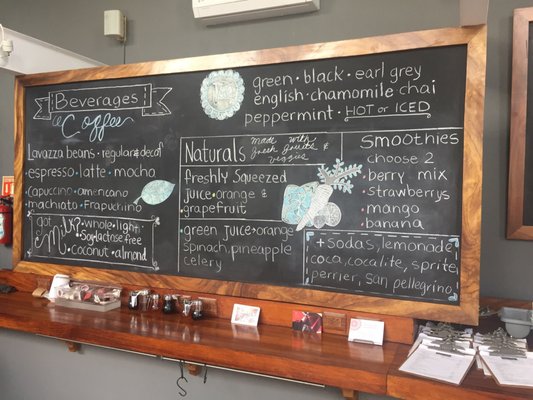 Beverages
Coffee
Lavazza beans · regular & decaf
espresso · latte · mocha
capuccino · americano
machiato · Frapuchino
got Milk?
whole · light
Soy · lactose free
coconut · almond
Tea
green · black · earl grey
english · chamomile chai
peppermint · HOT or ICED
Naturals made with fresh fruits & veggies
freshly Squeezed
juice · orange &
grapefruit
green juice · orange
spinach, pineapple
celery
Smoothies
choose 2
berry mix
strawberrys
mango
banana
+ sodas, lemonade
coca, cocalite, sprite
perrier, san pellegrino